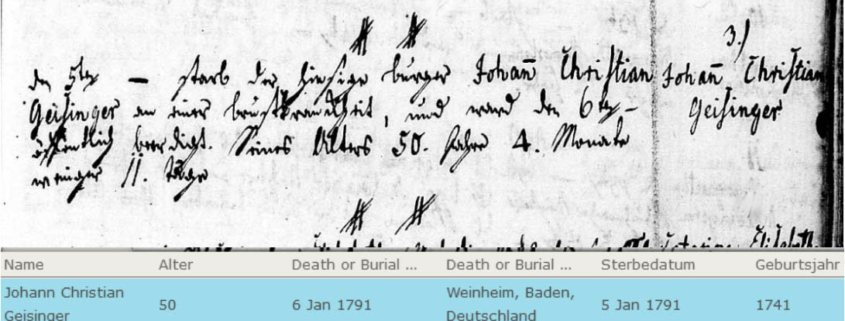 3.)
den 5ten — starb der hiesige burger Johañ Christian
Geisinger an einer brustkrankheit, und ward den 6ten –
öffentlich beerdigt. Seines Alters 50. Jahre 4. Monate
weniger 11. Täge
Johañ Christian
Geisinger
Name Alter Death or Burial ... Death or Burial ... Sterbedatum Geburtsjahr
Johann Christian
Geisinger
50
6 Jan 1791
Weinheim, Baden,
Deutschland
5 Jan 1791
1741